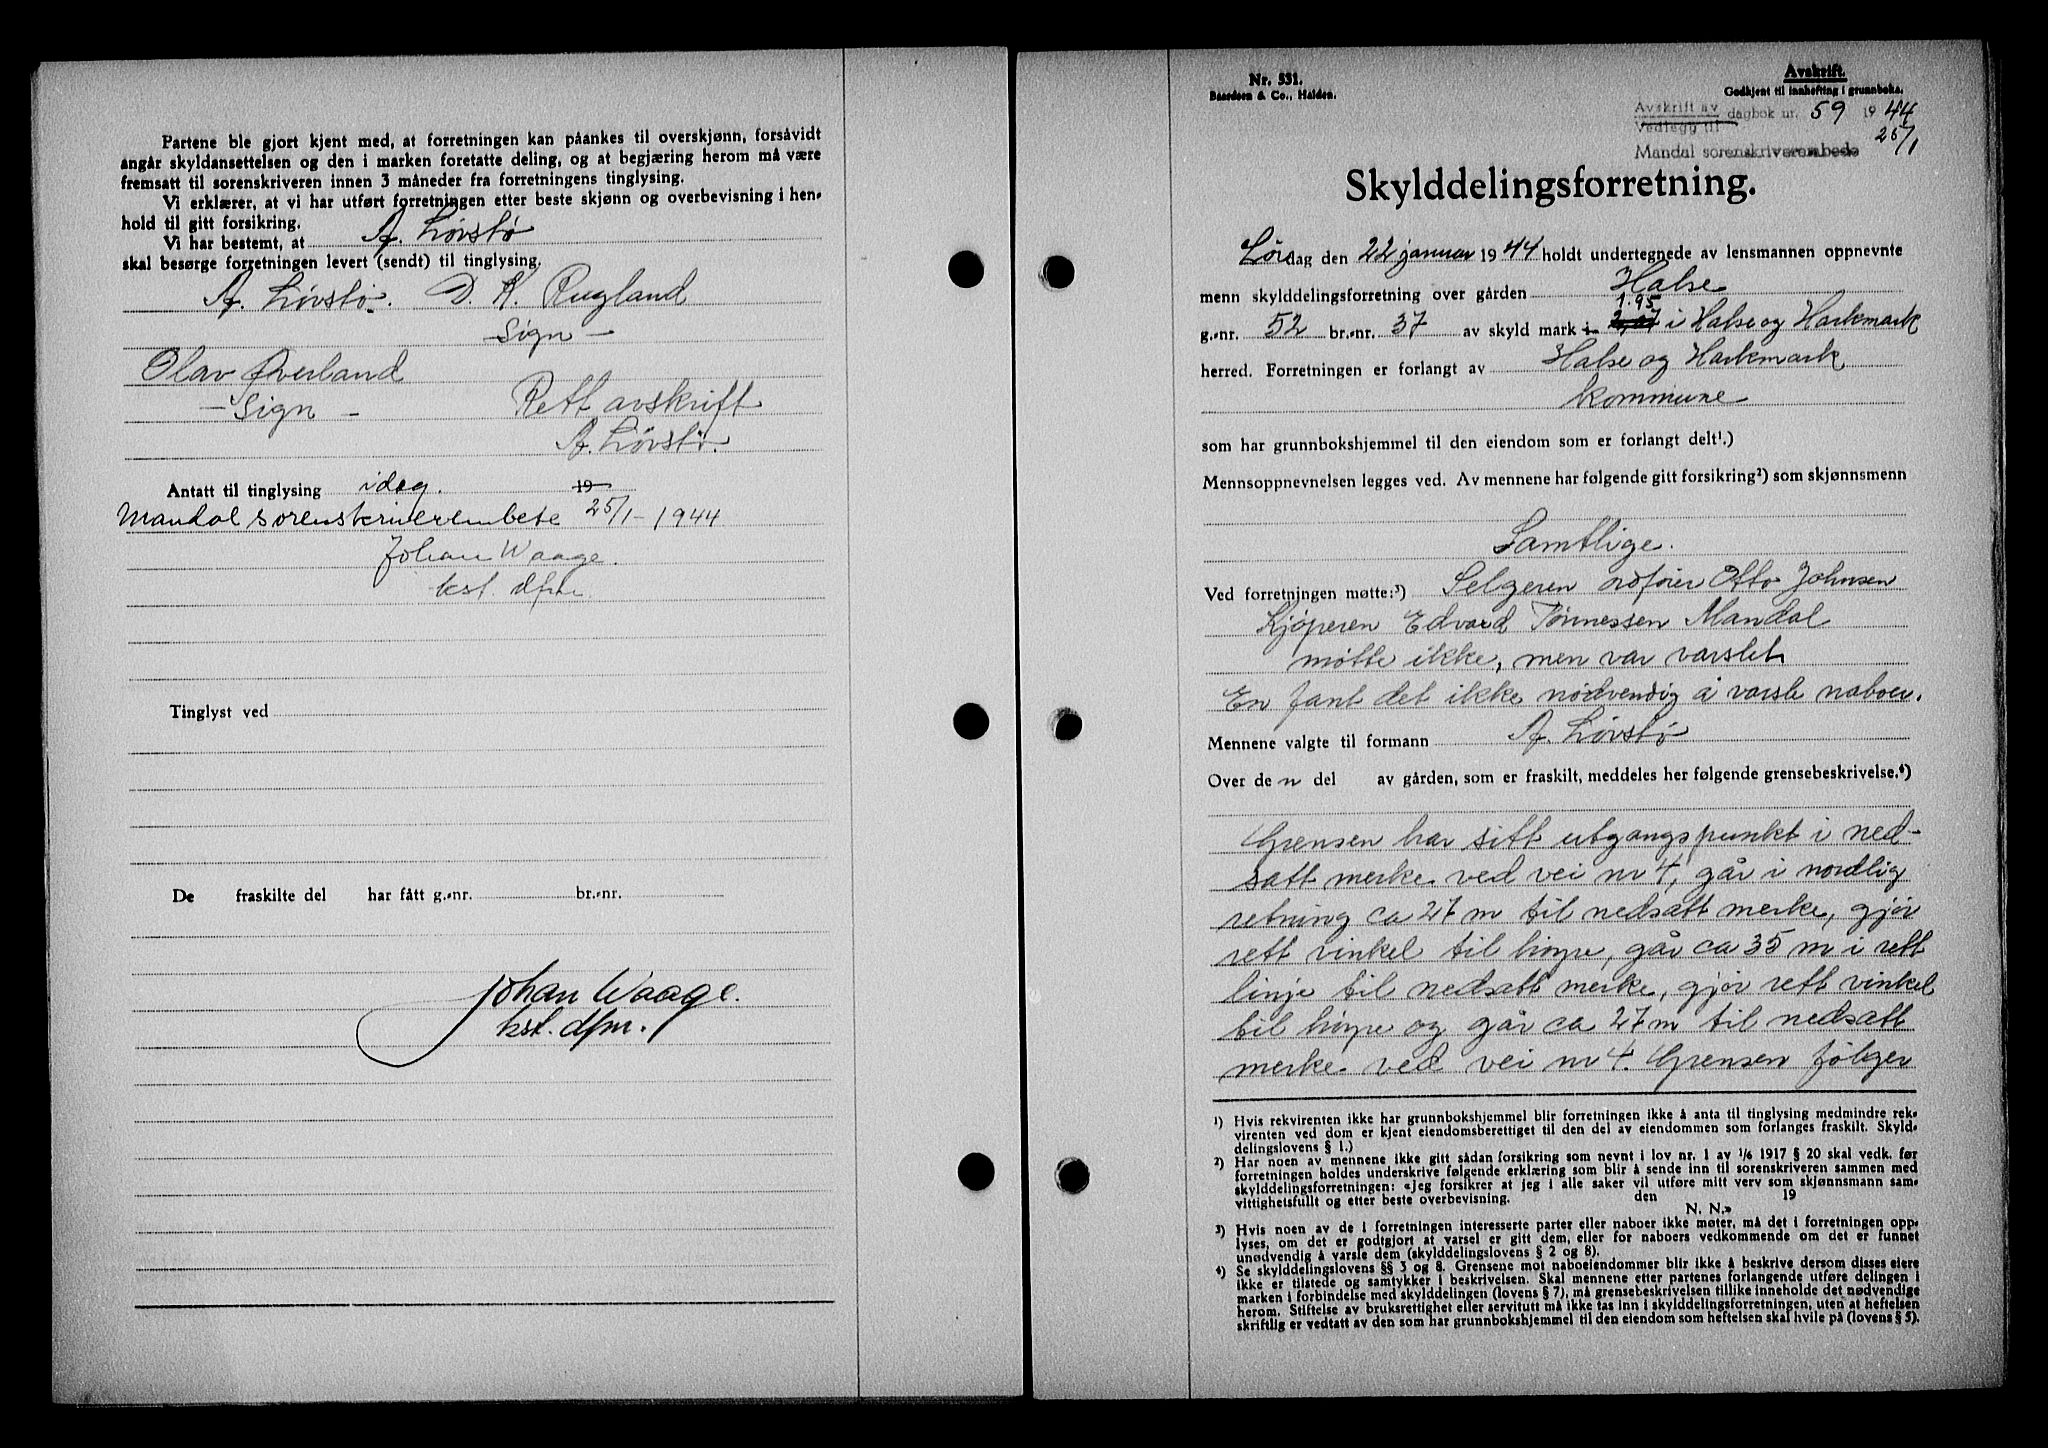 Partene ble gjort kjent med, at forretningen kan påankes til overskjønn, forsåvidt
angår skyldansettelsen og den i marken foretatte deling, og at begjæring herom må være
fremsatt til sorenskriveren innen 3 måneder fra forretningens tinglysing.
Vi erklærer, at vi har utført forretningen etter beste skjønn og overbevisning i hen-
hold til gitt forsikring.
Vi har bestemt, at A. Løvstø
skal besørge forretningen levert (sendt) til tinglysing.
A. Løvstø. D. K. Rugland
Sign -
Olav Øverland
- Sign - Rett avskrift
A. Løvstø.
Antatt til tinglysing idag. 19
Mandal sorenskriverembete 25/1-1944
Johan Waage.
kst. dfm.
Tinglyst ved
De fraskilte del har fått g.-nr. br.-nr.
Johan Waage.
kst. dfm.
Nr. 531.
Baardsen & Co., Halden.
Avskrift.
Godkjent til innhefting i grunnboka.
Avskrift av
Vedlegg til dagbok nr. 59 1944
Mandal sorenskriverembede 25/1
Skylddelingsforretning.
Lørdag den 22 januar 1944 holdt undertegnede av lensmannen oppnevnte
menn skylddelingsforretning over gården Halse
1.95
g.-nr. 52 br.-nr. 37 av skyld mark i Halse og Harkmark
herred. Forretningen er forlangt av Halse og Harkmark
kommune
som har grunnbokshjemmel til den eiendom som er forlangt delt¹.)
Mennsoppnevnelsen legges ved. Av mennene har følgende gitt forsikring²) som skjønnsmenn
Samtlige.
Ved forretningen møtte:³) Selgeren ordfører Otto Johnsen
Kjøperen Edvard Tønnessen Mandal
møtte ikke, men var varslet
En fant det ikke nødvendig å varsle naboer.
Mennene valgte til formann A. Løvstø
Over de n del av gården, som er fraskilt, meddeles her følgende grensebeskrivelse.⁴)
Grensen har sitt utgangspunkt i ned-
satt merke ved vei nr 4, går i nordlig
retning ca 27 m til nedsatt merke, gjør
rett vinkel til høyre, går ca 35 m i rett
linje til nedsatt merke, gjør rett vinkel
til høyre og går ca 27 m til nedsatt
merke ved vei nr 4. Grensen følger
¹) Hvis rekvirenten ikke har grunnbokshjemmel blir forretningen ikke å anta til tinglysing medmindre rek-
virenten ved dom er kjent eiendomsberettiget til den del av eiendommen som forlanges fraskilt. Skyld-
delingslovens § 1.)
²) Har noen av mennene ikke gitt sådan forsikring som nevnt i lov nr. 1 av 1/6 1917 § 20 skal vedk. før
forretningen holdes underskrive følgende erklæring som blir å sende inn til sorenskriveren sammen med
skylddelingsforretningen: «Jeg forsikrer at jeg i alle saker vil utføre mitt verv som skjønnsmann sam-
vittighetsfullt og etter beste overbevisning. den 19
N. N.»
³) Hvis noen av de i forretningen interesserte parter eller naboer ikke møter, må det i forretningen opp-
lyses, om det er godtgjort at varsel er gitt dem, eller for naboers vedkommende om det er funnet
unødvendig å varsle dem (skylddelingslovens § 2 og 8).
⁴) Se skylddelingslovens §§ 3 og 8. Grensene mot naboeiendommer blir ikke å beskrive dersom disses eiere
ikke er tilstede og samtykker i beskrivelsen. Skal mennene etter partenes forlangende utføre delingen i
marken i forbindelse med skylddelingen (lovens § 7), må grensebeskrivelsen tillike inneholde det nødvendige
herom. Stiftelse av bruksrettighet eller servitutt må ikke tas inn i skylddelingsforretningen, uten at heftelsen
skriftlig er vedtatt av den som har grunnbokshjemmel til den eiendom som heftelsen skal hvile på (lovens § 5).